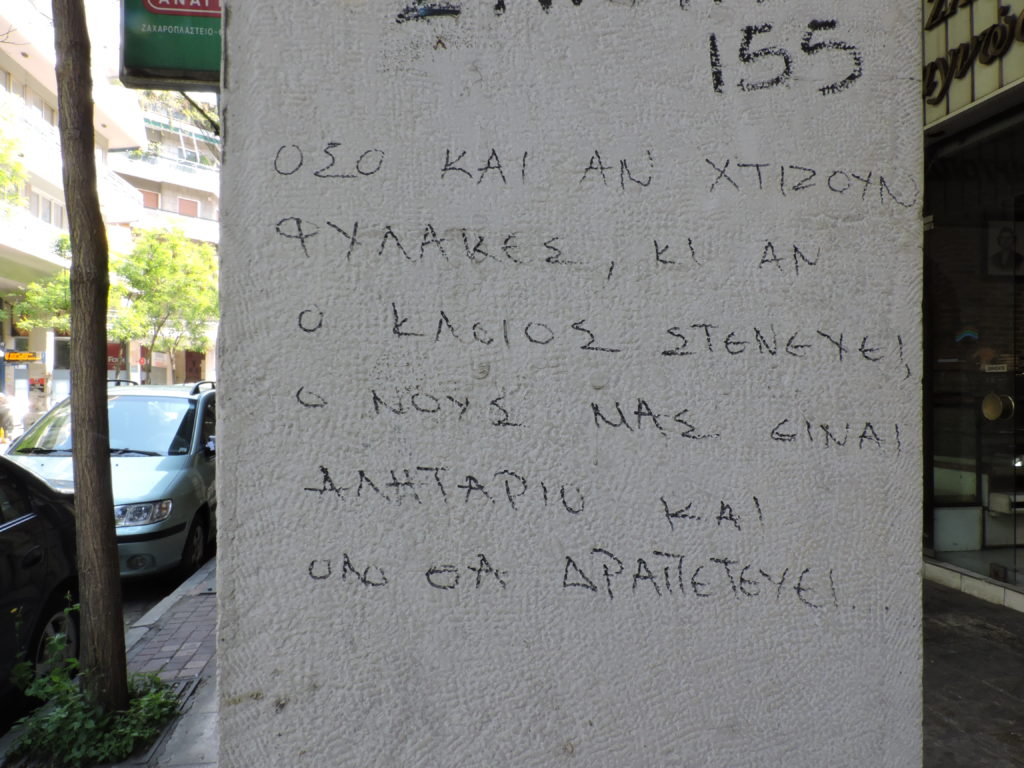 ΖΑΧΑΡΟΠΛΑΣΤΕΙΟ
155
ΟΣΟ ΚΑΙ ΑΝ ΧΤΙΖΟΥΝ
ΦΥΛΑΚΕΣ, ΚΙ ΑΝ
Ο ΚΛΟΙΟΣ ΣΤΕΝΕΥΕΙ,
Ο ΝΟΥΣ ΜΑΣ ΕΙΝΑΙ
ΑΛΗΤΑΡΙΟ ΚΑΙ
ΟΛΟ ΘΑ ΔΡΑΠΕΤΕΥΕΙ...